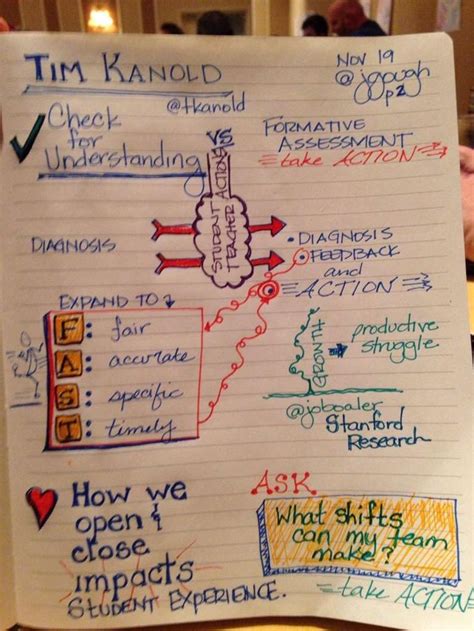 TIM KANOLD
@tkanold
NOV 19
@jgough
p2
Check
for
Understanding
VS
FORMATIVE
ASSESSMENT
take ACTION
STUDENT ACTIONS
TEACHER
DIAGNOSIS
• DIAGNOSIS
• FEEDBACK
and
ACTION
EXPAND TO
F : fair
A : accurate
S : specific
T : timely
GROWTH
productive
struggle
@joboaler
Stanford
Research
How we
open &
close
impacts
STUDENT EXPERIENCE.
ASK
What shifts
can my team
make?
take ACTION